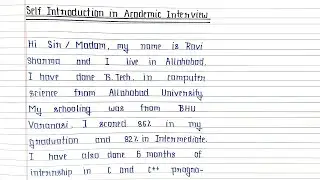 Self Introduction in Academic Interview
Hi Sir / Madam, my name is Ravi
Sharma and I live in Allahabad.
I have done B.Tech. in computer
science from Allahabad University
My schooling was from BHU
Varanasi. I scored 86% in my
graduation and 82% in Intermediate.
I have also done 6 months of
internship in C and C++ progra-